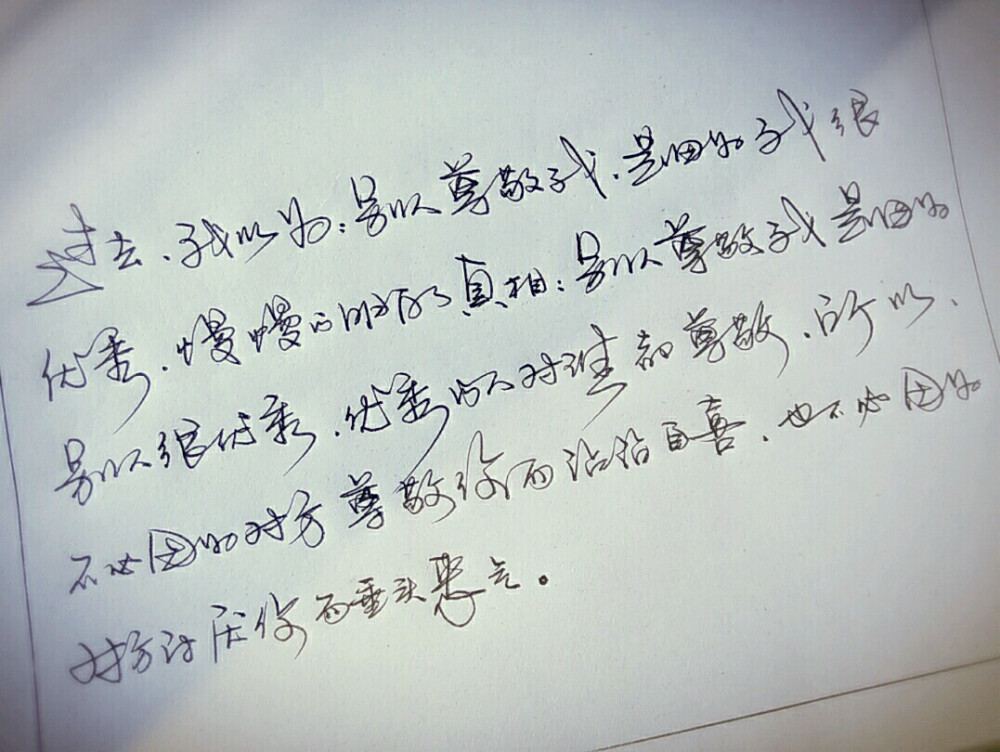 过去，我以为：别人尊敬我，是因为我很
优秀，慢慢的明白了真相：别人尊敬我是因为
别人很优秀，优秀的人对谁都尊敬，所以，
不必因为对方尊敬你而沾沾自喜，也不必因为
对方讨厌你而垂头丧气。